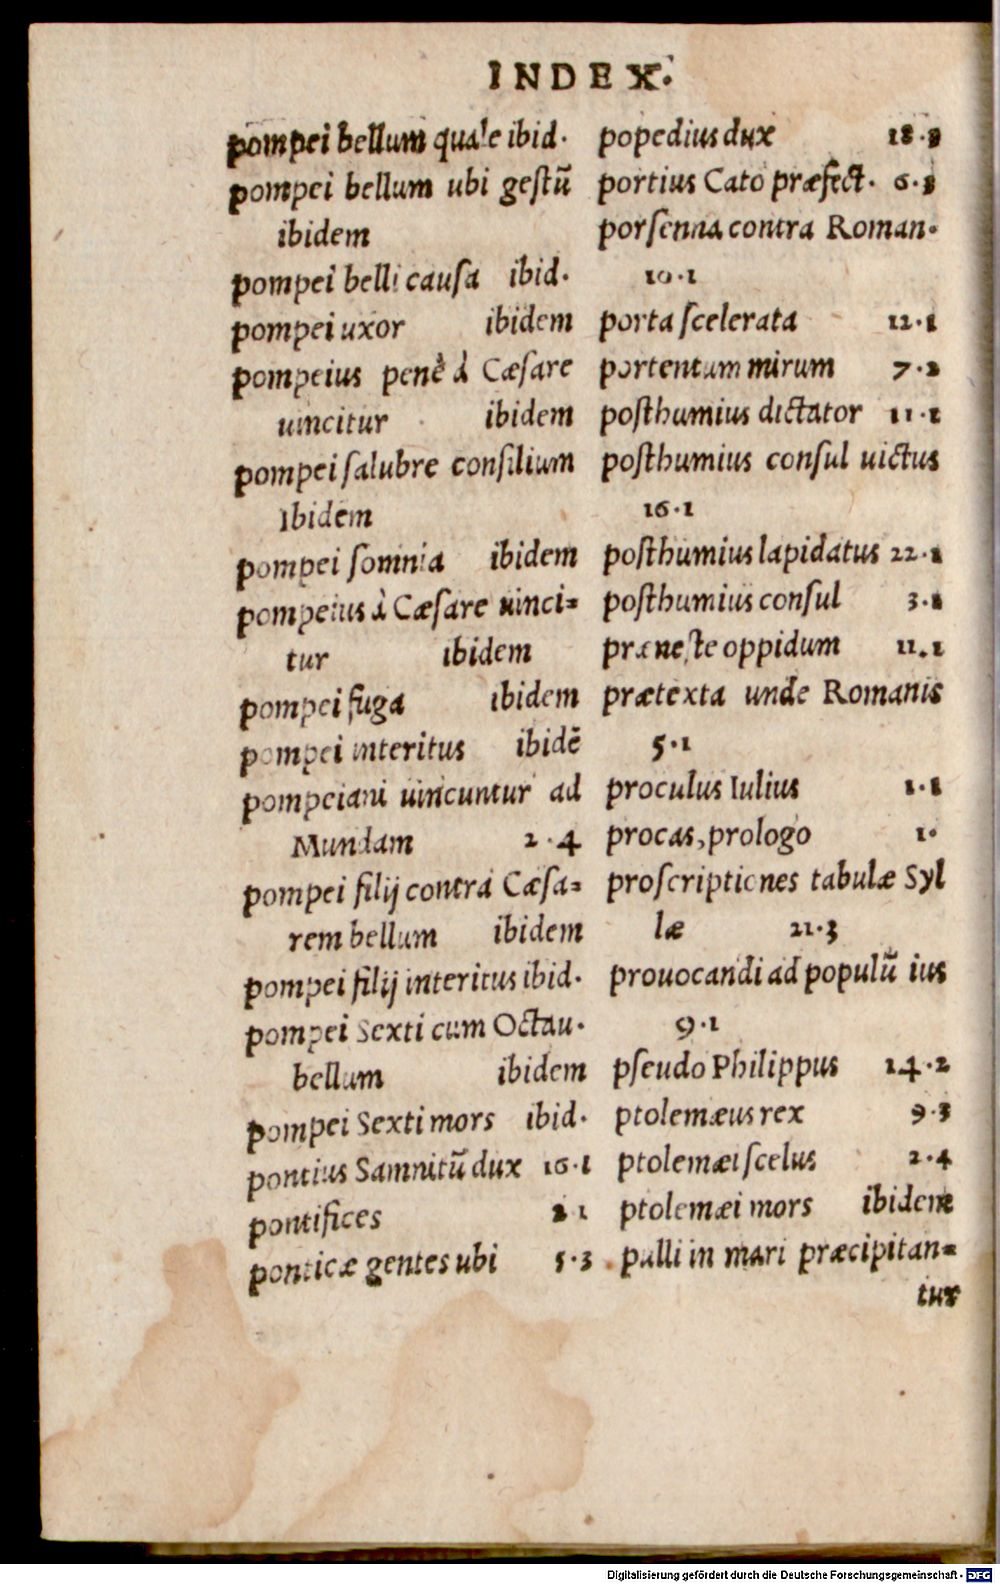 INDEX.
pompei bellum quale ibid.
pompei bellum ubi gestū
ibidem
pompei belli causa ibid.
pompei uxor ibidem
pompeius penè à Cæsare
uincitur ibidem
pompei salubre consilium
Ibidem
pompei somnia ibidem
pompeius à Cæsare uinci=
tur ibidem
pompei fuga ibidem
pompei interitus ibidē
pompeiani uincuntur ad
Mundam 2.4
pompei filij contra Cæsa=
rem bellum ibidem
pompei filij interitus ibid.
pompei Sexti cum Octau.
bellum ibidem
pompei Sexti mors ibid.
pontius Samnitū dux 16.1
pontifices 2 1
ponticæ gentes ubi 5.3
popedius dux 18.3
portius Cato præfect. 6.3
porsenna contra Roman.
10.1
porta scelerata 12.1
portentum mirum 7.2
posthumius dictator 11.1
posthumius consul uictus
16.1
posthumius lapidatus 22.1
posthumius consul 3.2
præneste oppidum 11.1
prætexta unde Romanis
5.1
proculus Iulius 1.1
procas, prologo 1.
proscriptiones tabulæ Syl
læ 21.3
prouocandi ad populū ius
9.1
pseudo Philippus 14.2
ptolemæus rex 9.3
ptolemæi scelus 2.4
ptolemæi mors ibidem
pulli in mari præcipitan=
tur
Digitalisierung gefördert durch die Deutsche Forschungsgemeinschaft - DFG